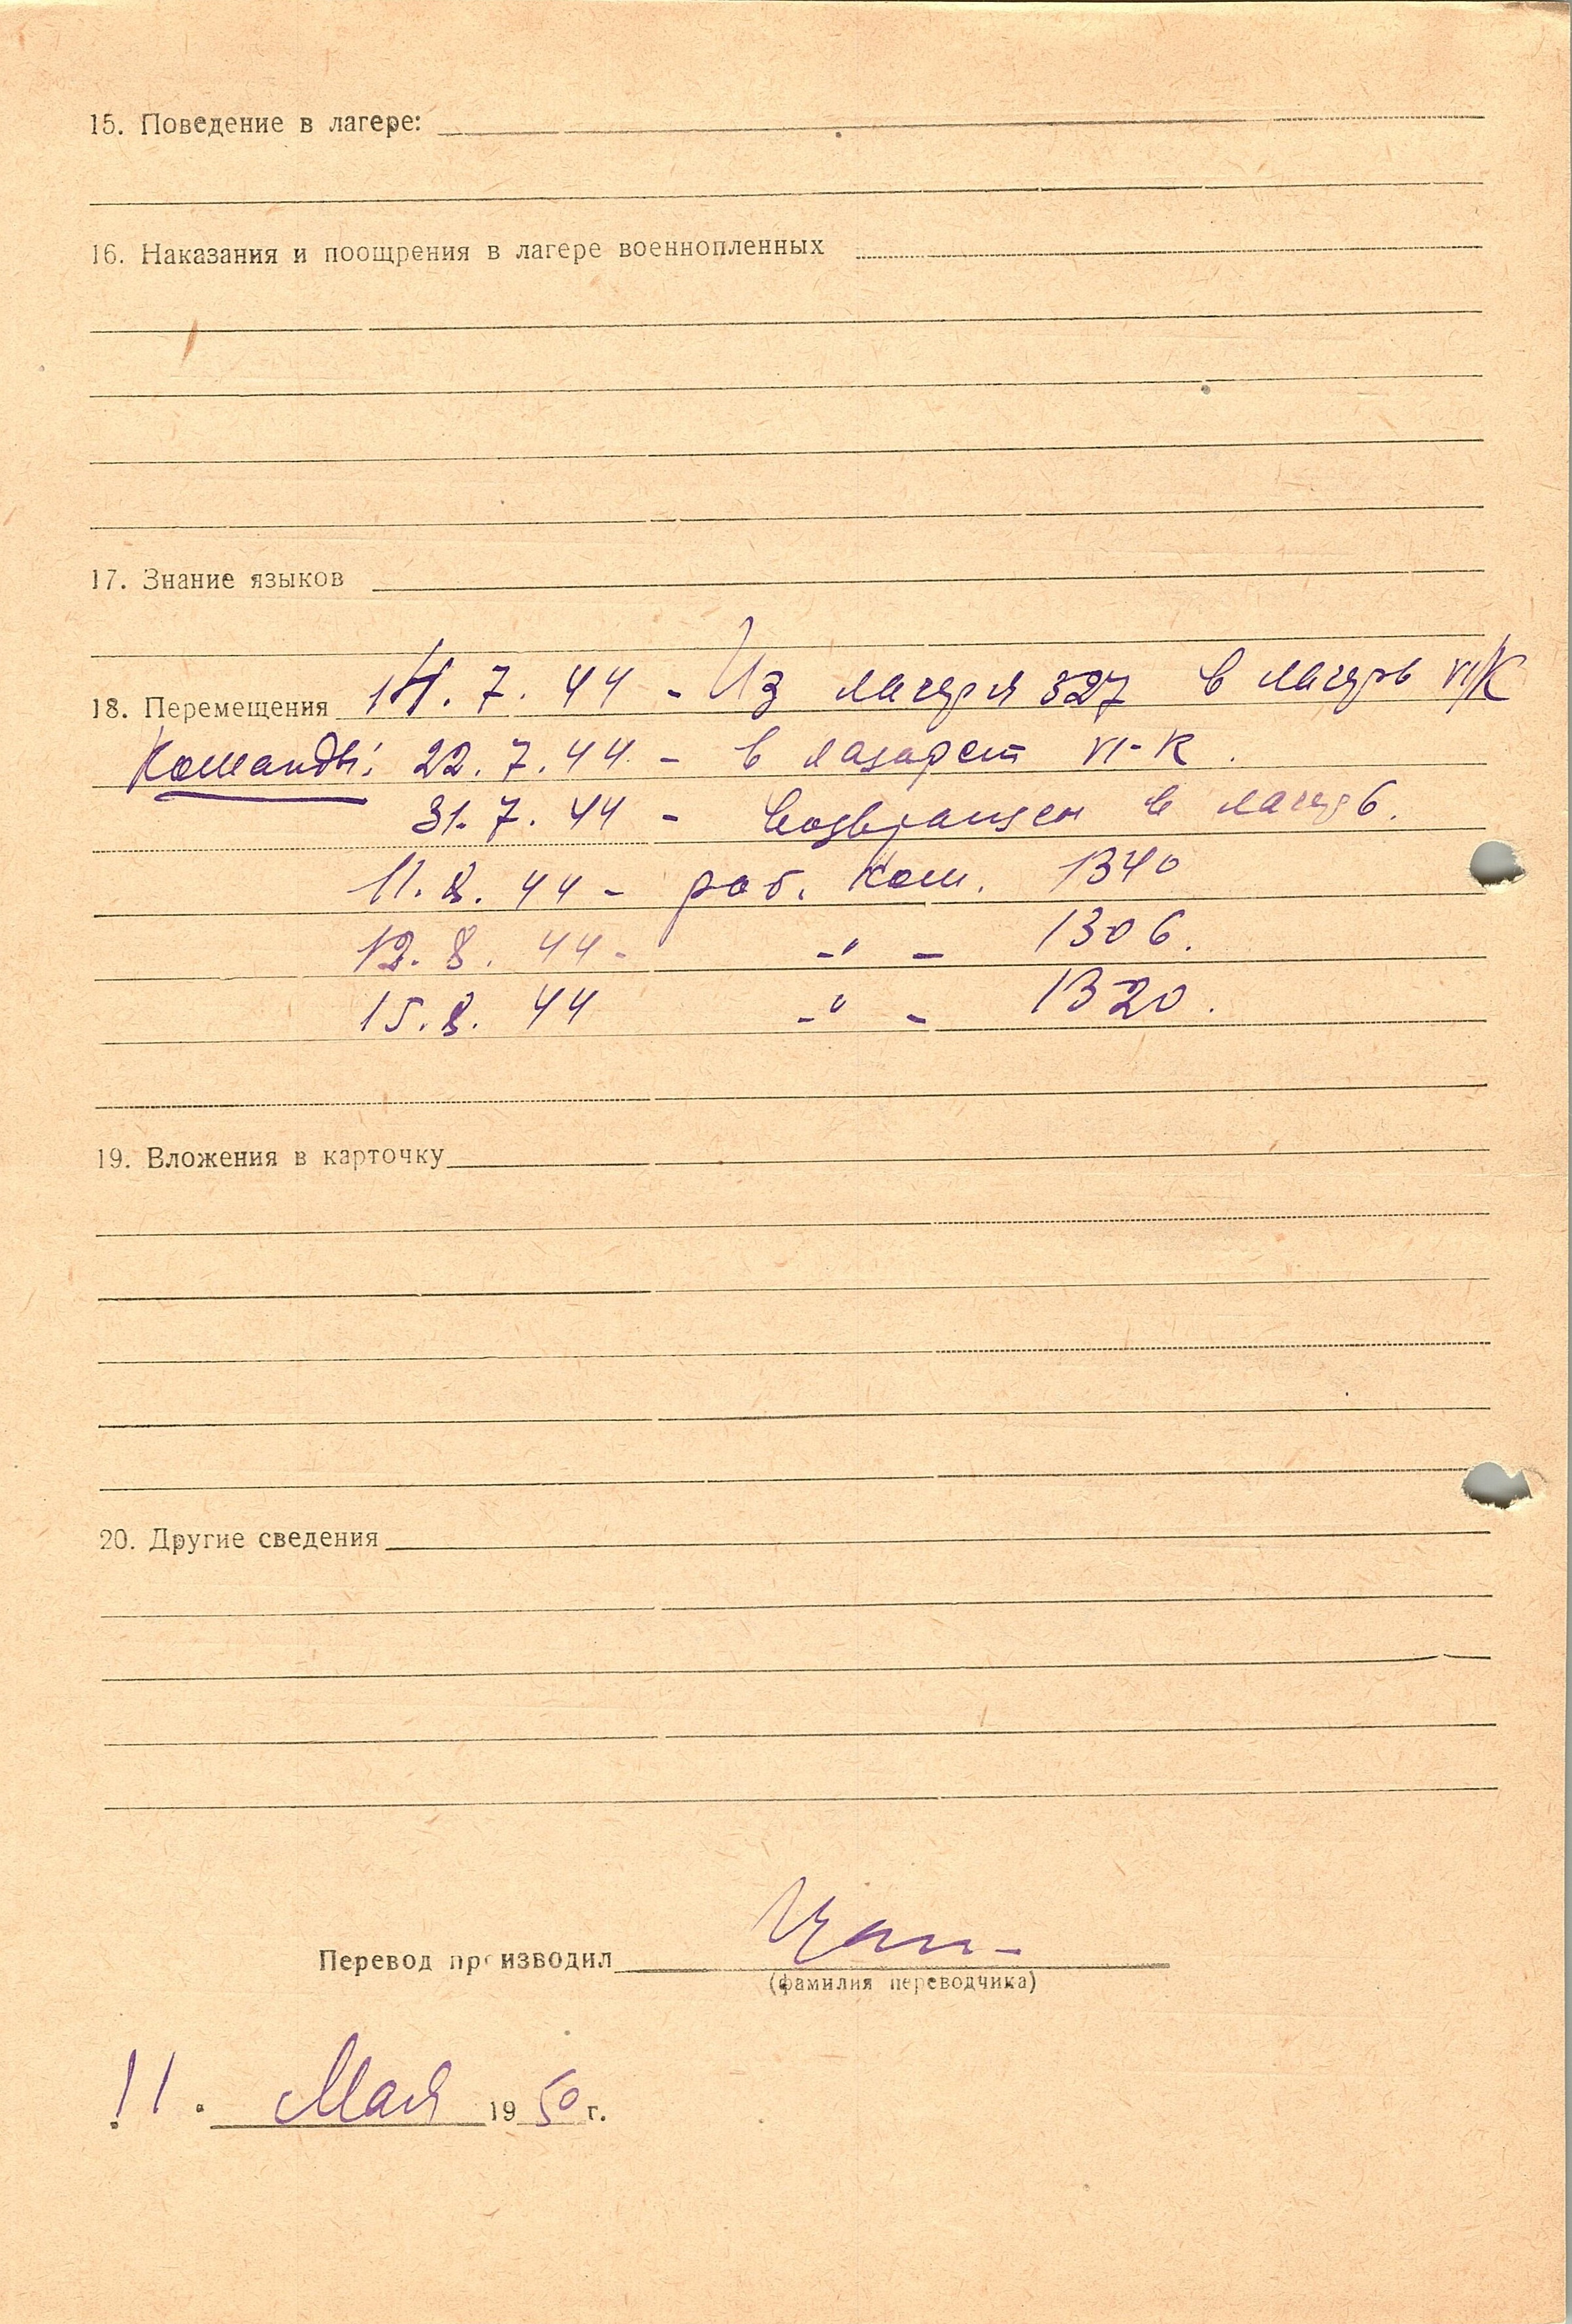 15. Поведение в лагере:
16. Наказания и поощрения в лагере военнопленных
17. Знание языков
18. Перемещения 14.7.44 - Из лагеря 327 в лагерь VI/K
Команды: 22.7.44 - в лазарет VI-K.
31.7.44 - возвращен в лагерь.
11.8.44 - раб. ком. 1340
12.8.44 - -"- 1306.
15.8.44 -"- 1320.
19. Вложения в карточку
20. Другие сведения
Перевод производил
(фамилия переводчика)
11. Мая 1950 г.